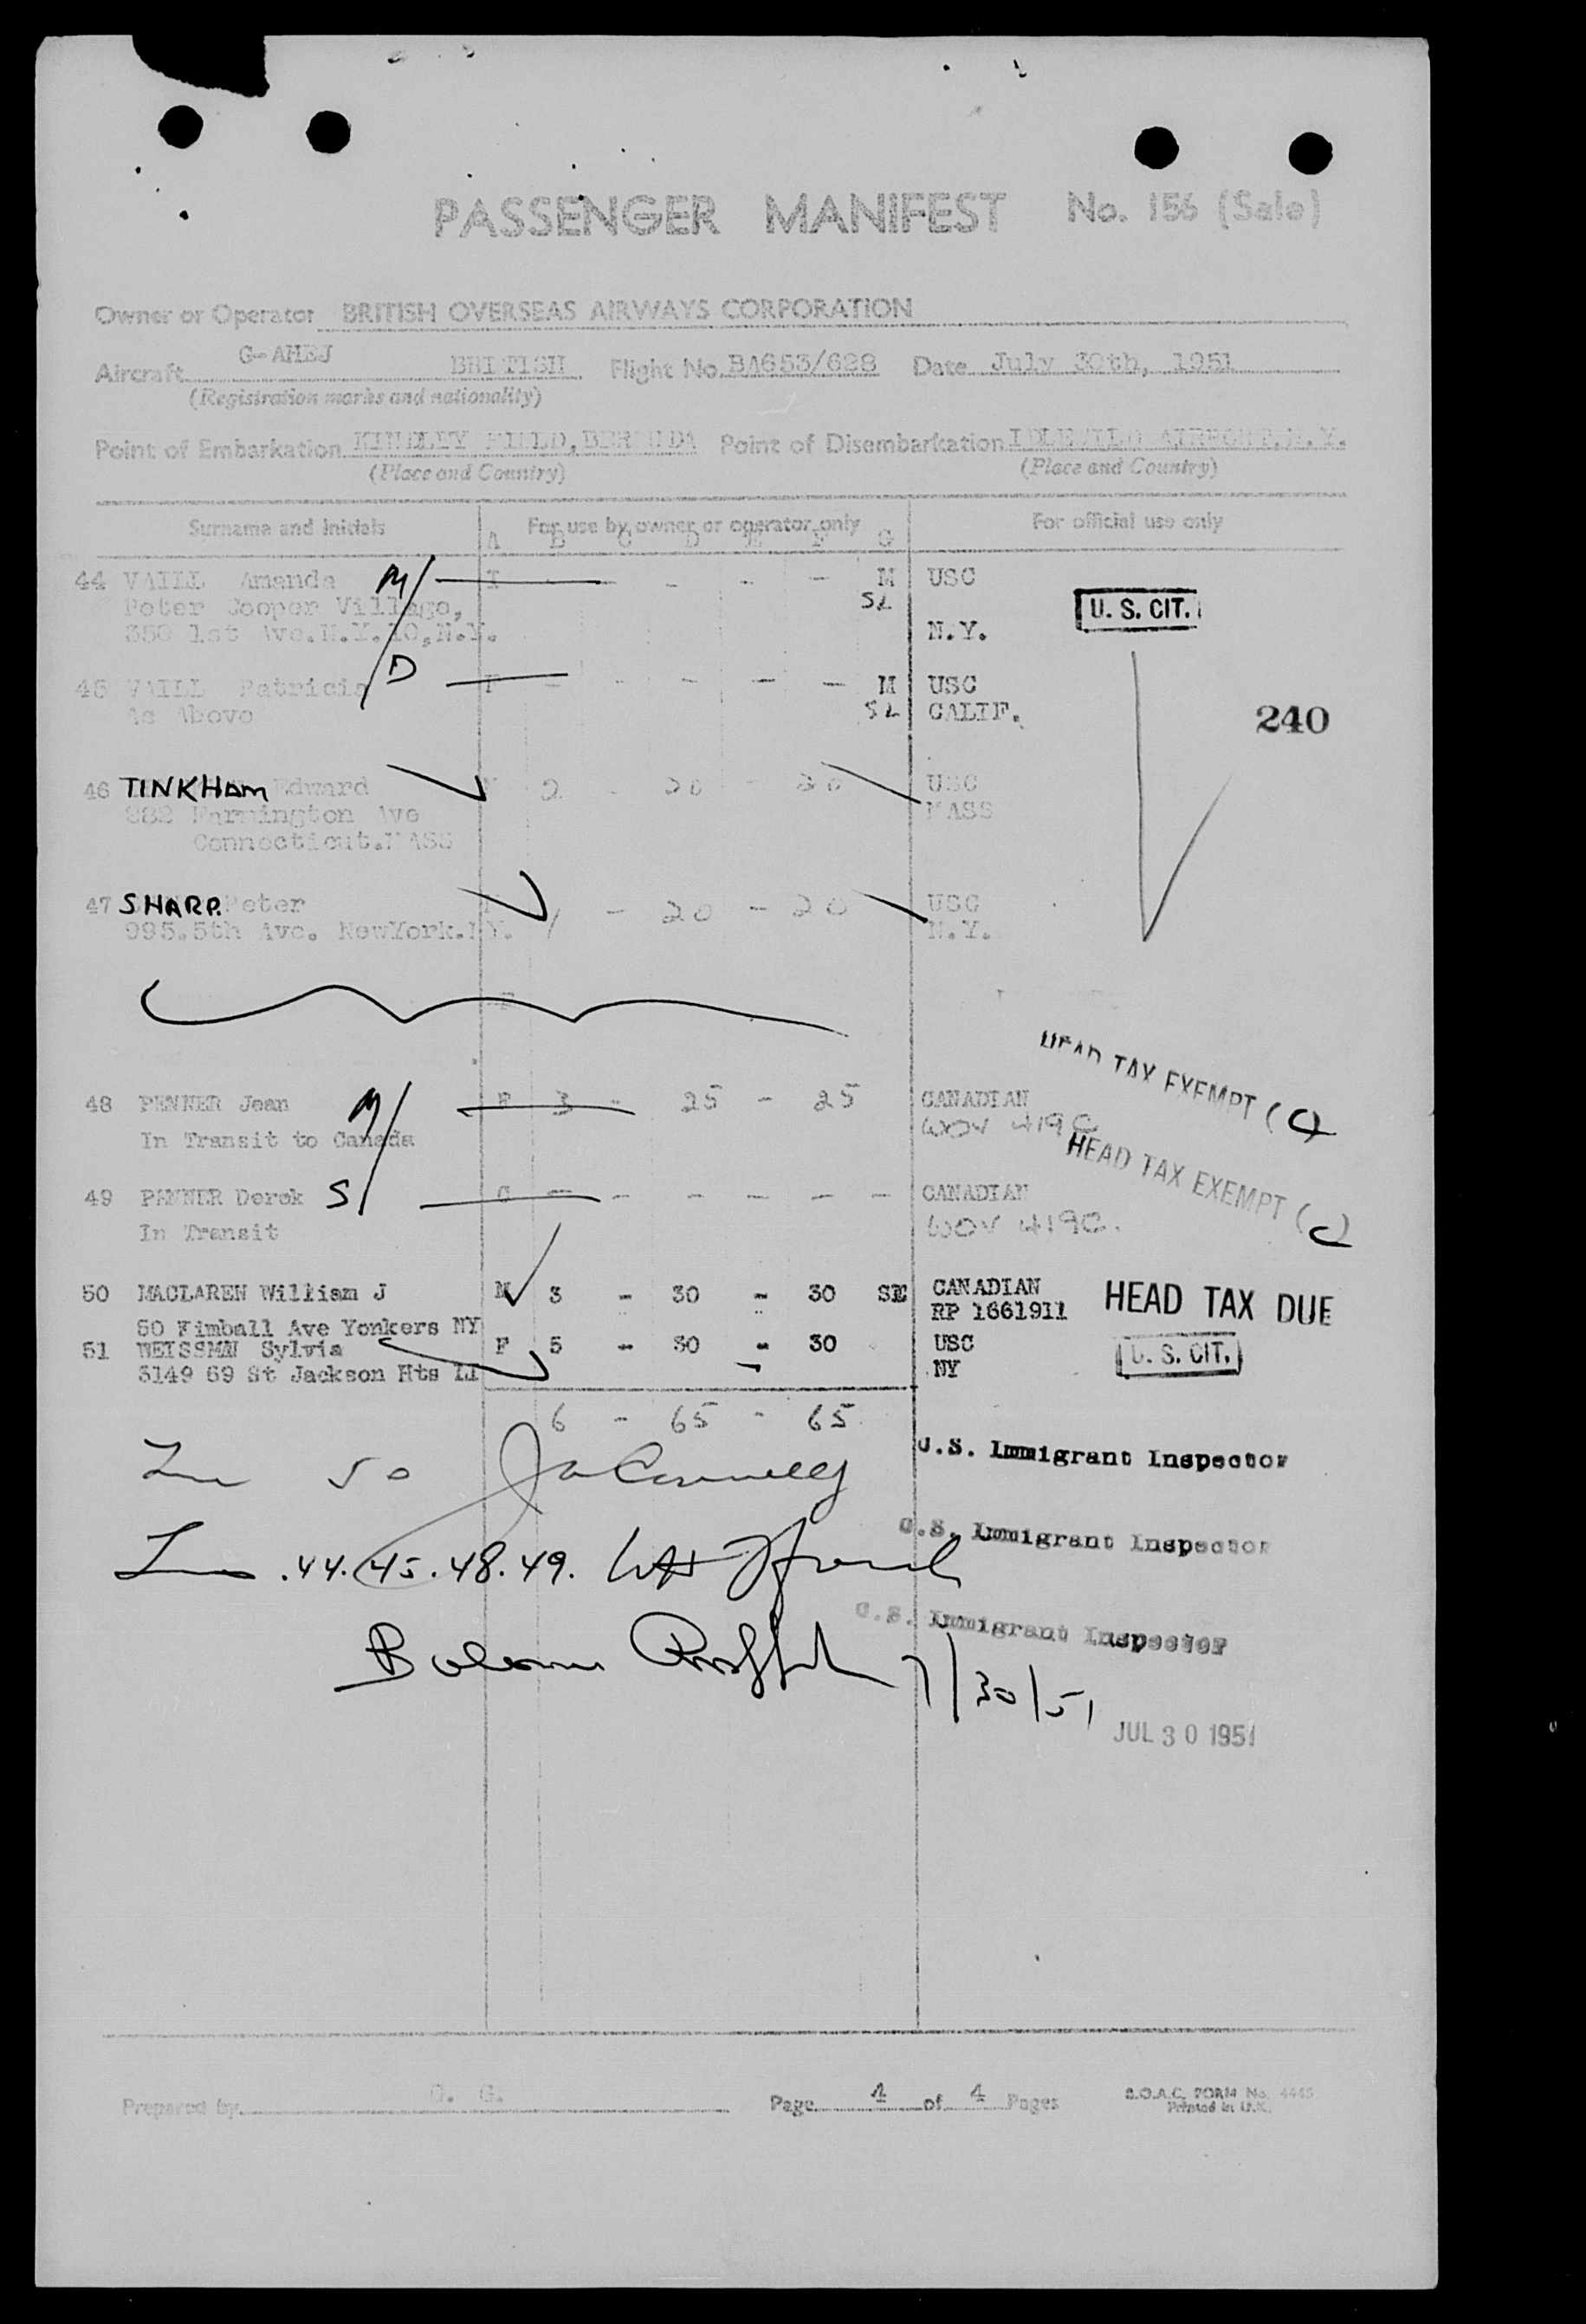 PASSENGER MANIFEST No. 156 (Sale)
Owner or Operator BRITISH OVERSEAS AIRWAYS CORPORATION
Aircraft G-AHEJ BRITISH Flight No. BA653/628 Date July 30th, 1951
(Registration marks and nationality)
Point of Embarkation KINDLEY FIELD, BERMUDA Point of Disembarkation IDLEWILD AIRPORT, N.Y.
(Place and Country) (Place and Country)
Surname and Initials For use by owner or operator only For official use only
A B C D E F G
44 VAILL Amanda M/ I - - - M USC
Peter Cooper Village, SL U. S. CIT.
350 1st Ave.N.Y.10,N.Y. N.Y.
45 VAILL Patricia D F - - - - - M USC
As Above SL CALIF. 240
46 TINKHAM Edward 2 - 20 - 20 USC
882 Farmington Ave MASS
Connecticut.MASS
47 SHARP. Peter 1 - 20 - 20 USC
995.5th Ave. NewYork.NY. N.Y.
F
HEAD TAX EXEMPT (C)
48 PENNER Jean M/ F 3 - 25 - 25 CANADIAN
In Transit to Canada WOV 419C
HEAD TAX EXEMPT (C)
49 PENNER Derek S C - - - - - - CANADIAN
In Transit WOV 419C.
50 MACLAREN William J M 3 - 30 - 30 SE CANADIAN HEAD TAX DUE
50 Kimball Ave Yonkers NY RP 1661911
51 WEISSMAN Sylvia F 5 - 30 - 30 USC U. S. CIT.
3149 69 St Jackson Hts LI NY
6 - 65 - 65
U.S. Immigrant Inspector
50
U.S. Immigrant Inspector
.44.45.48.49.
U.S. Immigrant Inspector
7/30/51
JUL 30 1951
Prepared by C. G. Page 4 of 4 Pages B.O.A.C. FORM No. 4445
Printed in U.K.